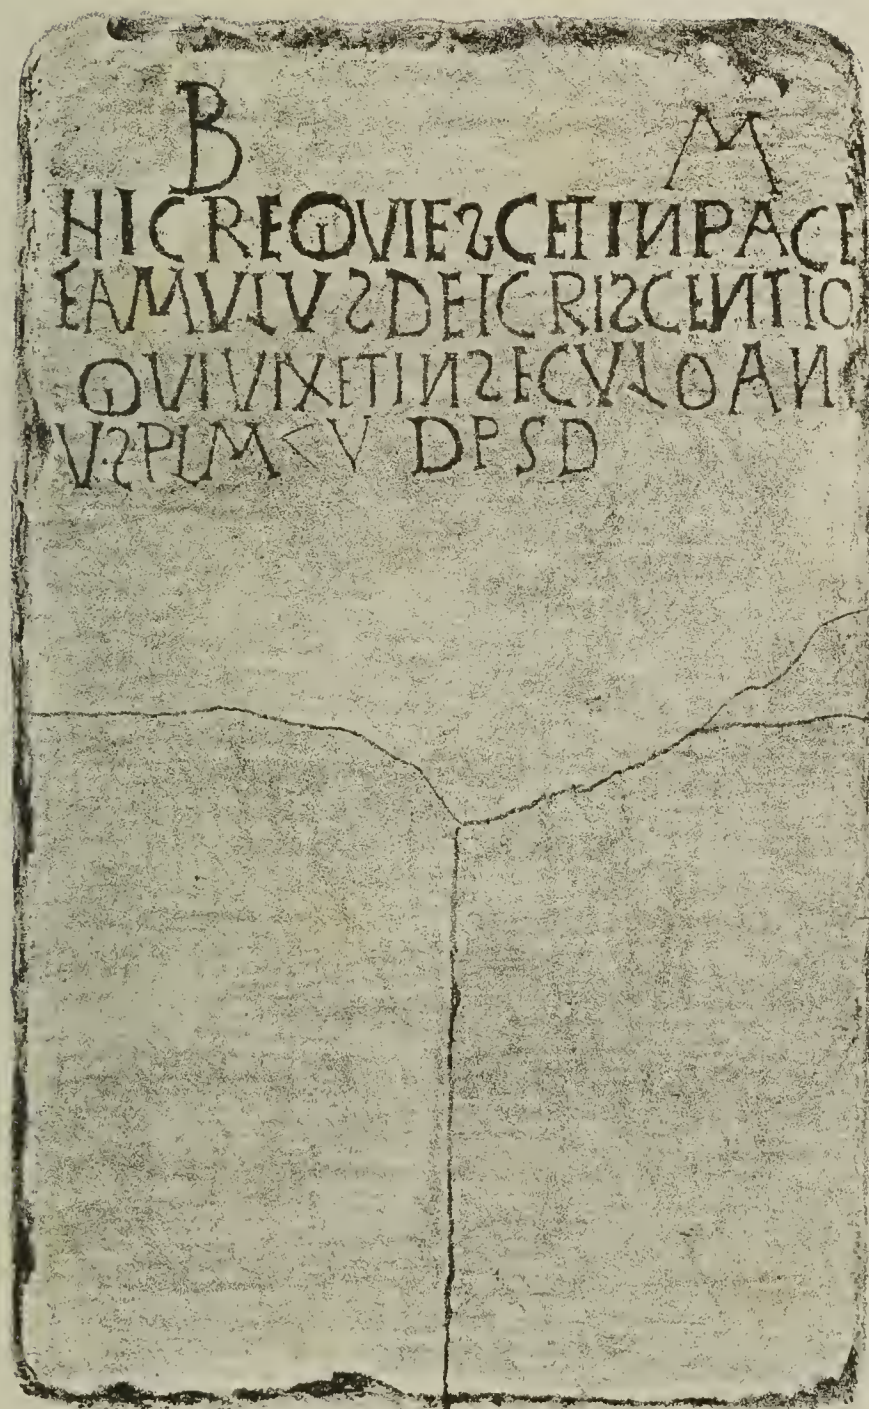 B M
HIC REQVIESCET IN PACE
EAMVLVS DEI CRISCENTIO
QVI VIXET IN SECVLO AN
VS PLM DPSD